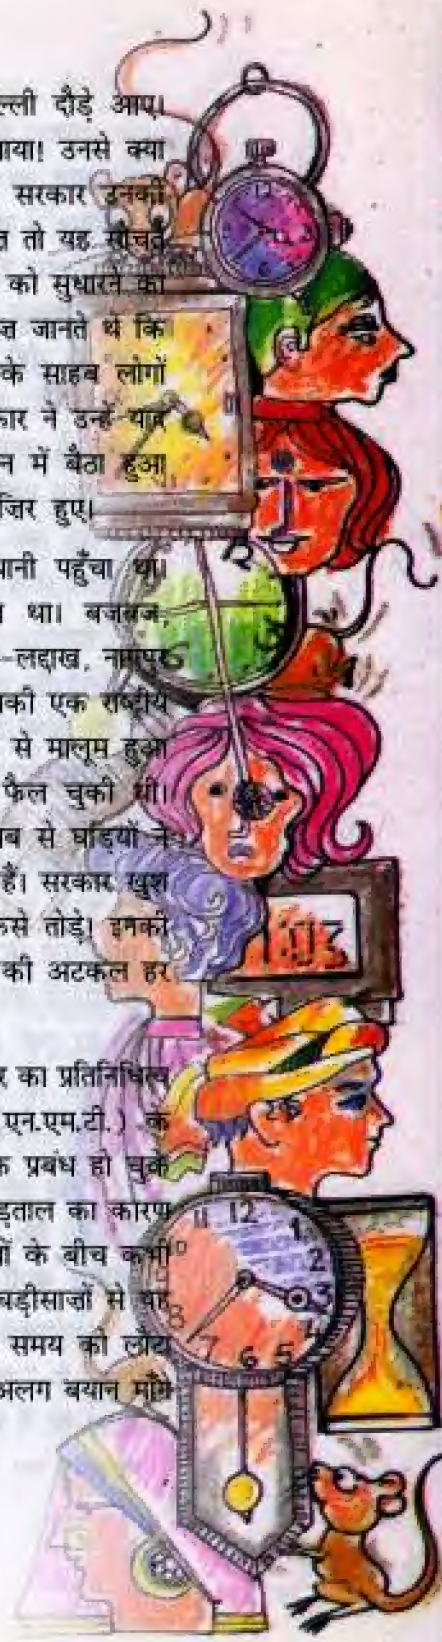 ल्ली दौड़े आए।
ाया! उनसे क्या
सरकार उनकी
त तो यह सोचते
को सुधारने का
ज़ जानते थे कि
के साहब लोगों
कार ने उन्हें याद
न में बैठा हुआ
ज़िर हुए।
ानी पहुँचा था।
ा था। बजबज,
-लद्दाख, नागपुर
की एक राष्ट्रीय
से मालूम हुआ
फैल चुकी थी।
ब से घड़ियों ने
हैं। सरकार खुश
कसे तोड़े! इनकी
की अटकल हर
र का प्रतिनिधित्व
एन.एम.टी.) के
क प्रबंध हो चुके
ड़ताल का कारण
ों के बीच कभी
घड़ीसाज़ों से यह
समय को लौटा
अलग बयान माँगे
12
12
1:03
11 12 1
2
3
4
8 7 6 5